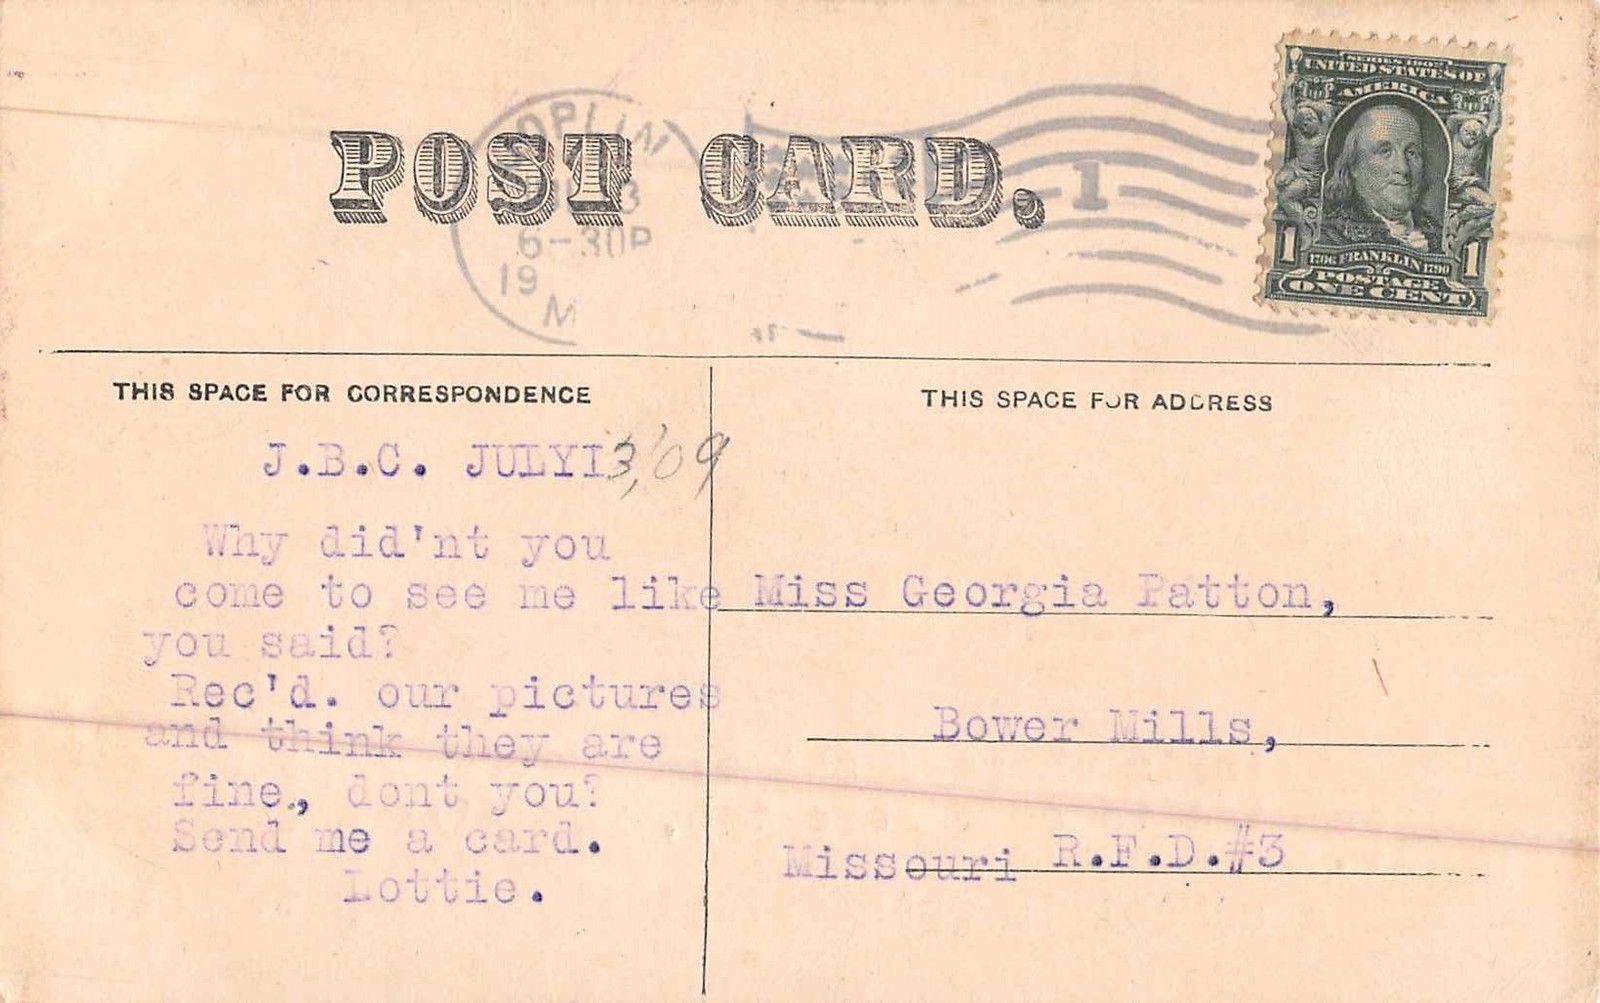 POST CARD.
OPLIN
3
6-30P
19
M
1
SERIES 1902
UNITED STATES OF
AMERICA
1 1
1706 FRANKLIN 1790
POSTAGE
ONE CENT
THIS SPACE FOR CORRESPONDENCE
J.B.C. JULYI3,'09
Why did'nt you
come to see me like
you said?
Rec'd. our pictures
and think they are
fine., dont you?
Send me a card.
Lottie.
THIS SPACE FOR ADDRESS
Miss Georgia Patton,
Bower Mills,
Missouri R.F.D.#3